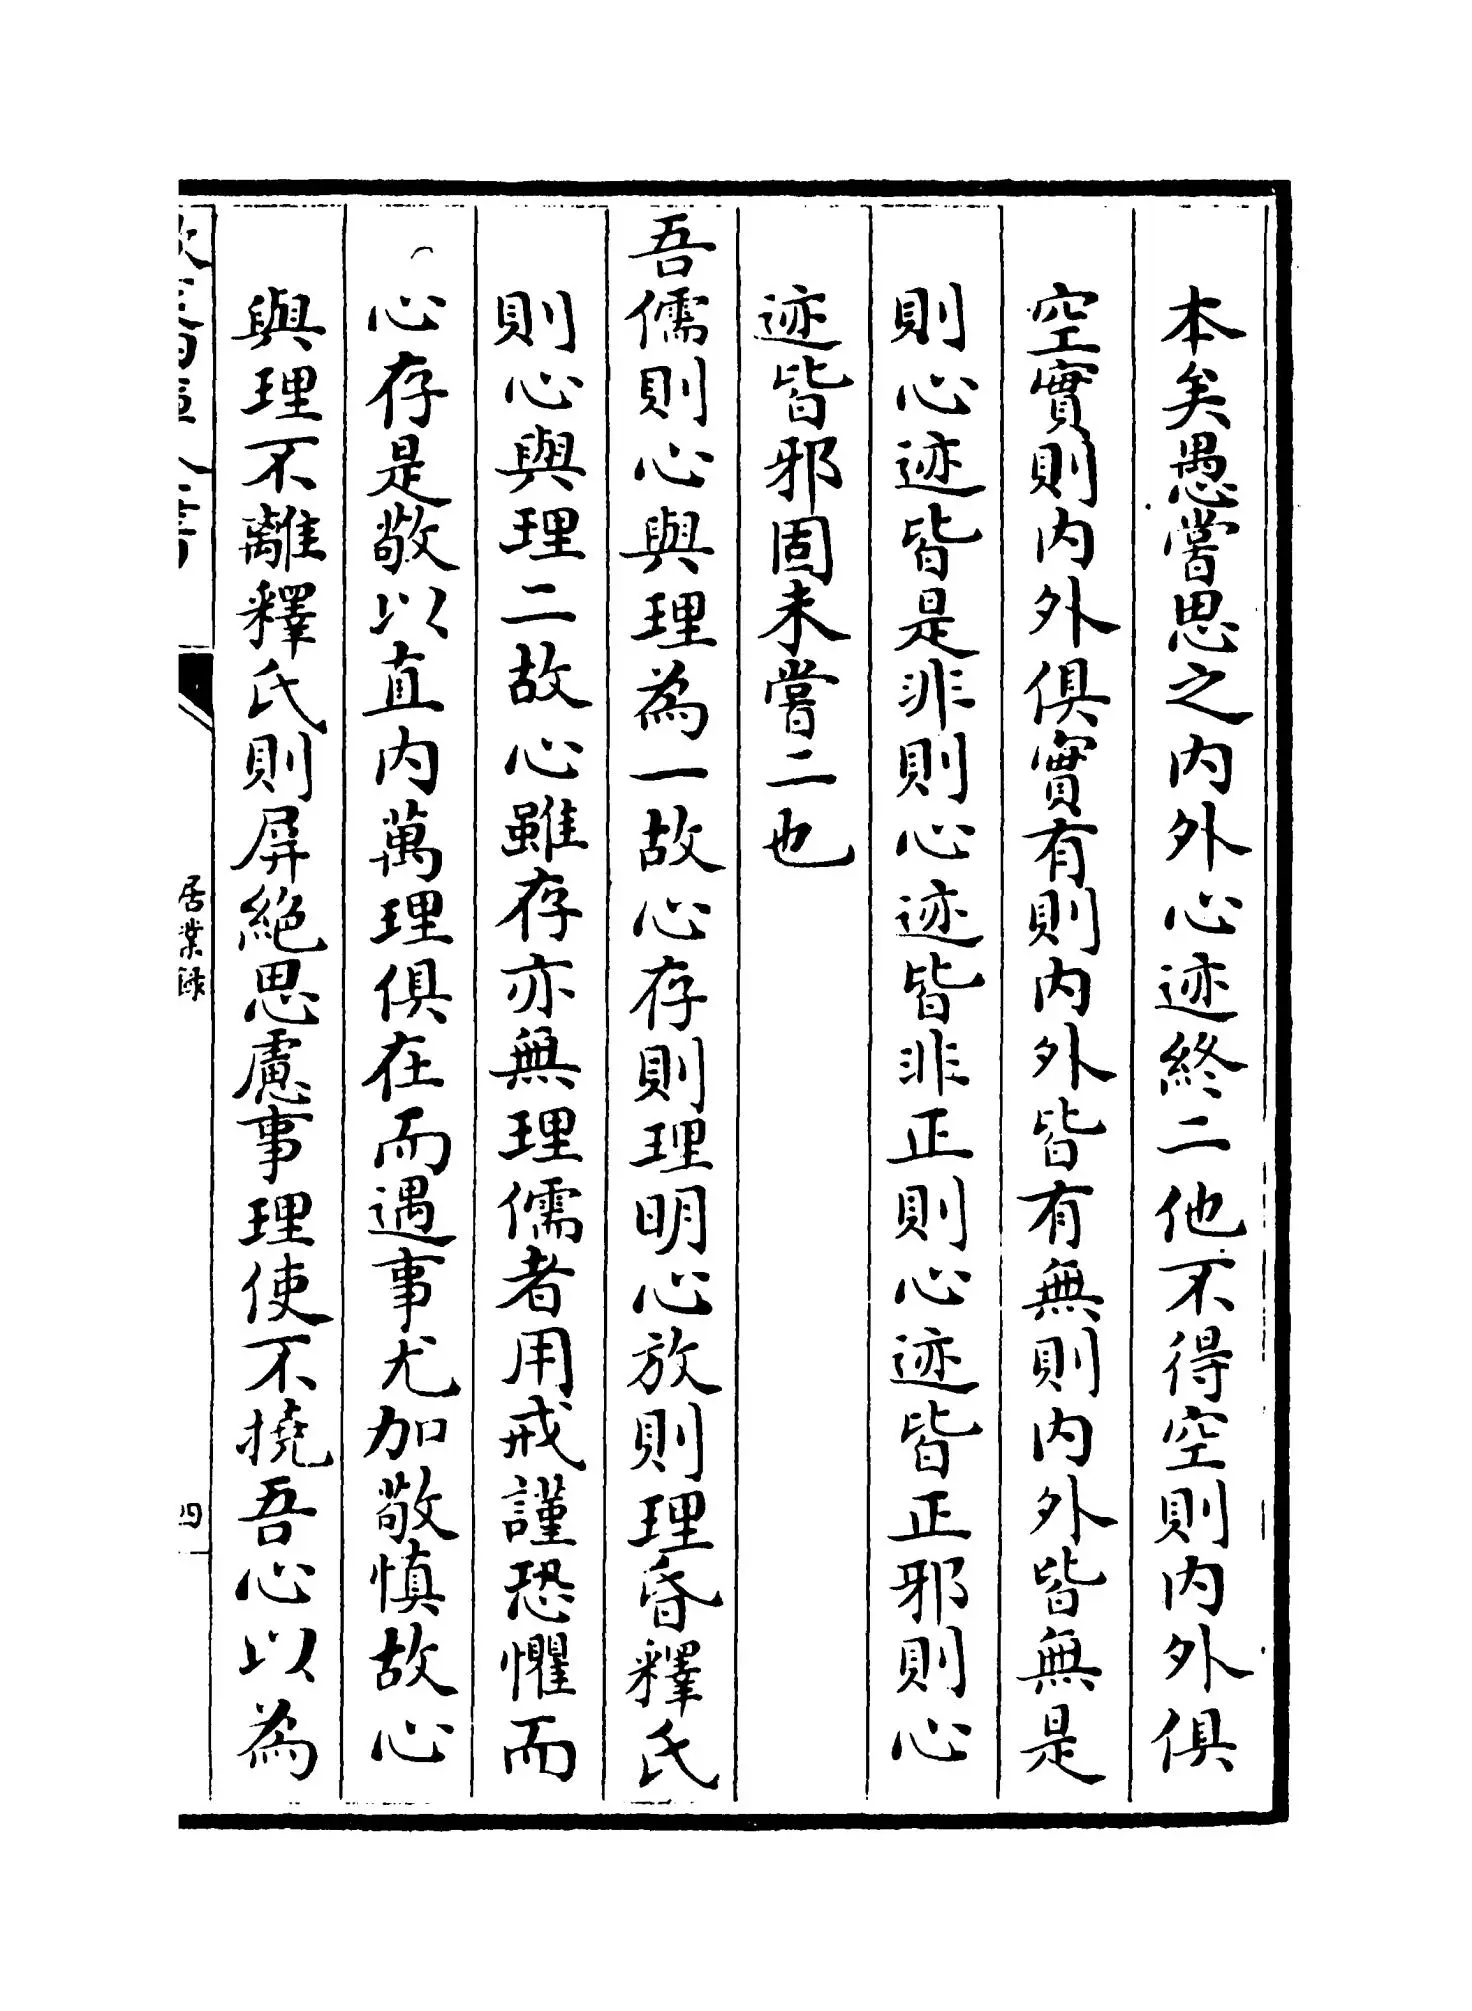 本矣愚嘗思之内外心迹終二他不得空則内外俱
空實則内外俱實有則内外皆有無則内外皆無是
則心迹皆是非則心迹皆非正則心迹皆正邪則心
迹皆邪固未嘗二也
吾儒則心與理為一故心存則理明心放則理昏釋氏
則心與理二故心雖存亦無理儒者用戒謹恐懼而
心存是敬以直内萬理俱在而遇事尤加敬慎故心
與理不離釋氏則屏絶思慮事理使不撓吾心以為
居業録
四